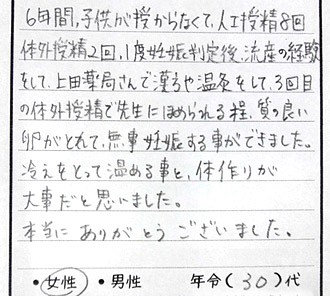 6年間、子供が授からなくて、人工授精8回
体外授精2回、1度妊娠判定後、流産の経験
をして、上田薬局さんで漢方や温灸をして、3回目
の体外授精で先生にほめられる程、質の良い
卵がとれて、無事妊娠する事ができました。
冷えをとって温める事と、体作りが
大事だと思いました。
本当にありがとうございました。
・女性 ・男性 年令(30)代